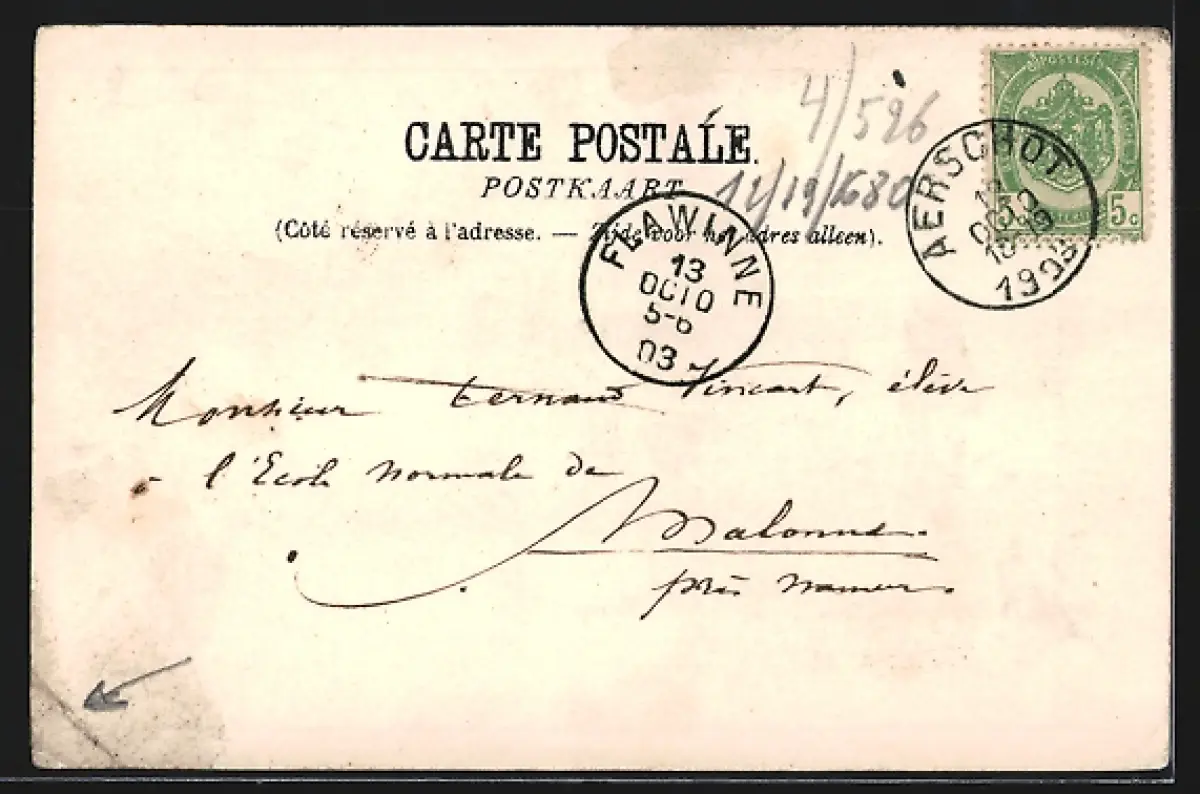 4/596
CARTE POSTALE.
POSTKAART
12/19/1680
(Côté réservé à l'adresse. — Zijde voor het adres alleen).
5 c
AERSCHOT
12
OCTO
18-19
1903
FLAWINNE
13
OCTO
5-6
03
Monsieur Fernand Vincart, élève
à l'Ecole normale de
Malonne
près Namur.